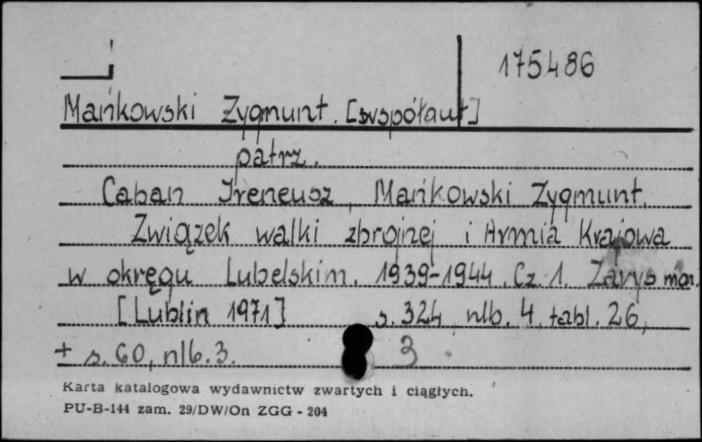 175486
Mańkowski Zygmunt. [współaut]
patrz.
Caban Ireneusz, Mańkowski Zygmunt.
Związek walki zbrojnej i Armia Krajowa
w okręgu Lubelskim. 1939-1944. Cz. 1. Zarys mon.
[Lublin 1971] s. 324, nlb. 4, tabl. 26,
+ s. 60, nlb. 3. 3
Karta katalogowa wydawnictw zwartych i ciągłych.
PU-B-144 zam. 29/DW/On ZGG - 204